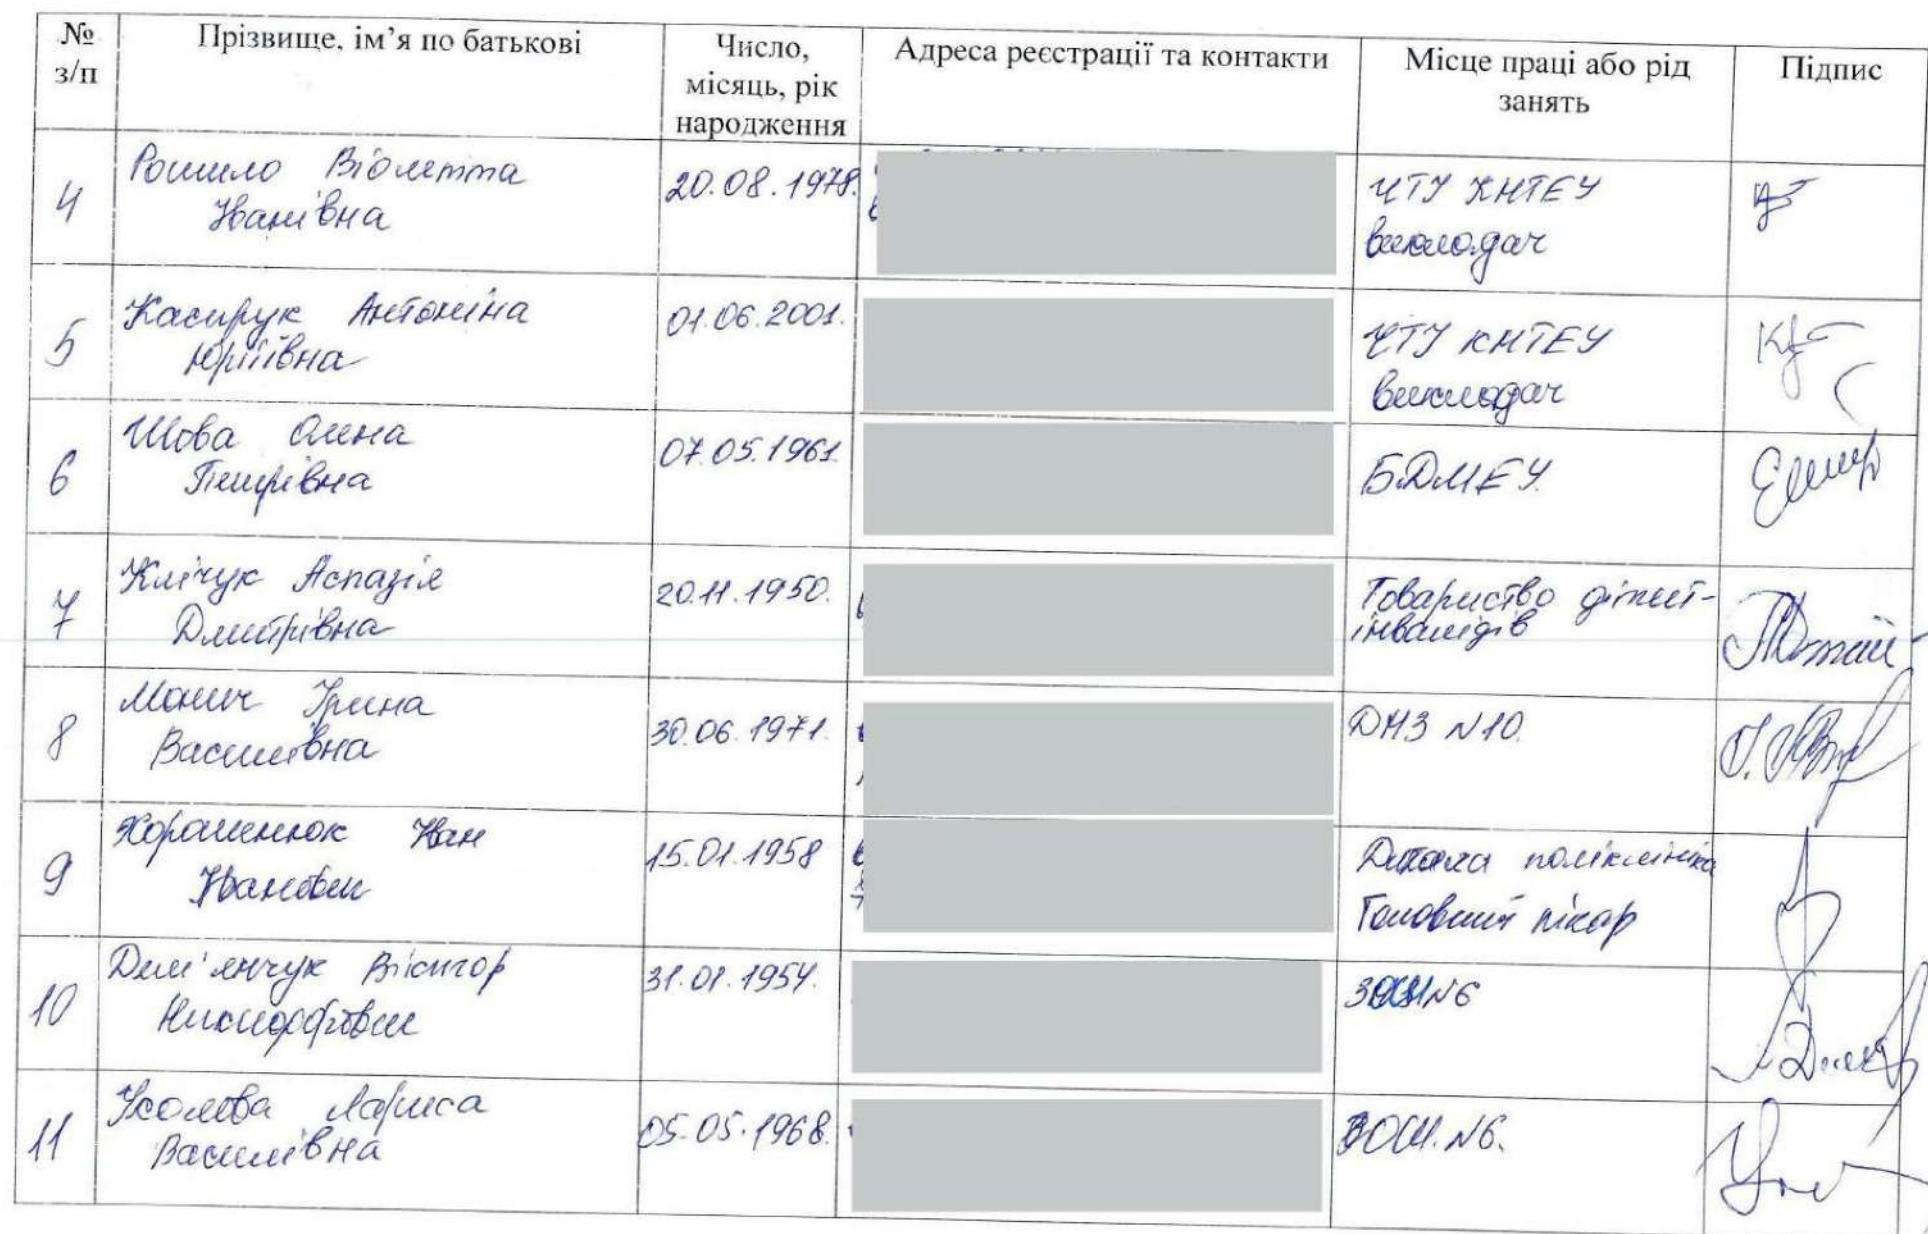 № з/п
Прізвище, ім’я по батькові
Число, місяць, рік народження
Адреса реєстрації та контакти
Місце праці або рід занять
Підпис
4
Рошило Віолетта
Іванівна
20.08.1978.
ЧТУ КНТЕУ
викладач
5
Касирук Антоніна
Юріївна
01.06.2001.
ЧТУ КНТЕУ
викладач
6
Шова Олена
Петрівна
07.05.1961.
БДМЕУ.
7
Клічук Аспазія
Дмитрівна
20.11.1950.
Товариство дітей-
інвалідів
8
Ірина
Василівна
30.06.1971.
ДНЗ №10.
9
Іван
Іванович
15.01.1958
Дитяча поліклініка
Головний лікар
10
Дем'янчук Віктор
Никифорович
31.01.1954.
ЗОШ №6
11
Усолєва Лариса
Василівна
05.05.1968.
ЗОШ. №6.